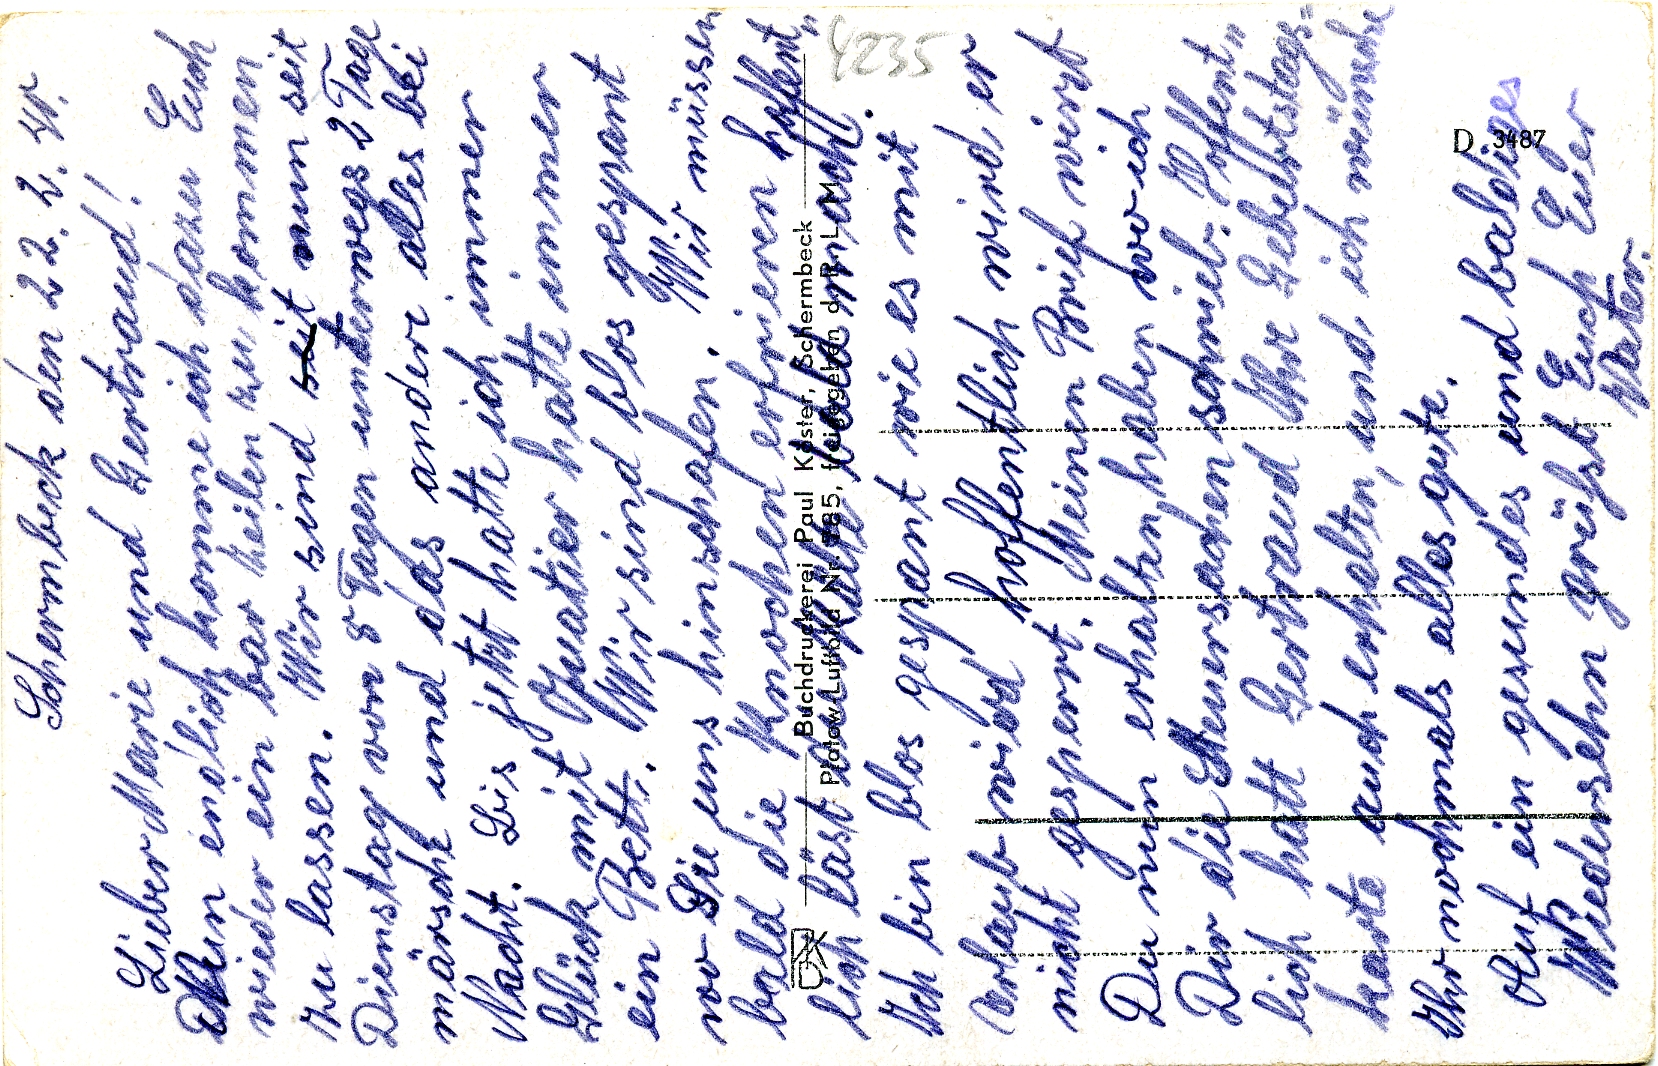 Schermbeck den 22. 2. 41.
Lieber Marie und Gertraud!
Nun endlich komme ich dazu Euch
wieder ein bar Zeilen zu kommen
zu lassen. Wir sind seit nun seit
Dienstag vor 8 Tagen unterwegs 2 Tage
märsche und das andere alles bei
Nacht. Bis jetzt hatte ich immer
Glück mit Quatier hatte immer
ein Bett. Wir sind blos gespant
wo Sie uns hinschafen. Wir müssen
bald die Knochen erfrieren hoffent„
lich läst die Kälte bald nach.
Ich bin blos gespant wie es mit
Urlaub wird hoffentlich wird er
nicht gesperrt. Meinen Brief wirst
Du nun erhalten haben wo ich
Dir die Steuersachen schrieb. Hoffent„
lich hatt Gertraud Ihr Gebultstags„
karte auch erhalten, und ich wünsche
Ihr nochmals alles gute.
Auf ein gesundes und baldiges
Wiedersehn grüßt Euch Euer
Vater.
4235
D 3487
Buchdruckerei Paul Köster, Schermbeck
Plotow-Luftbild Nr. 785, freigegeben d. R. L. M.